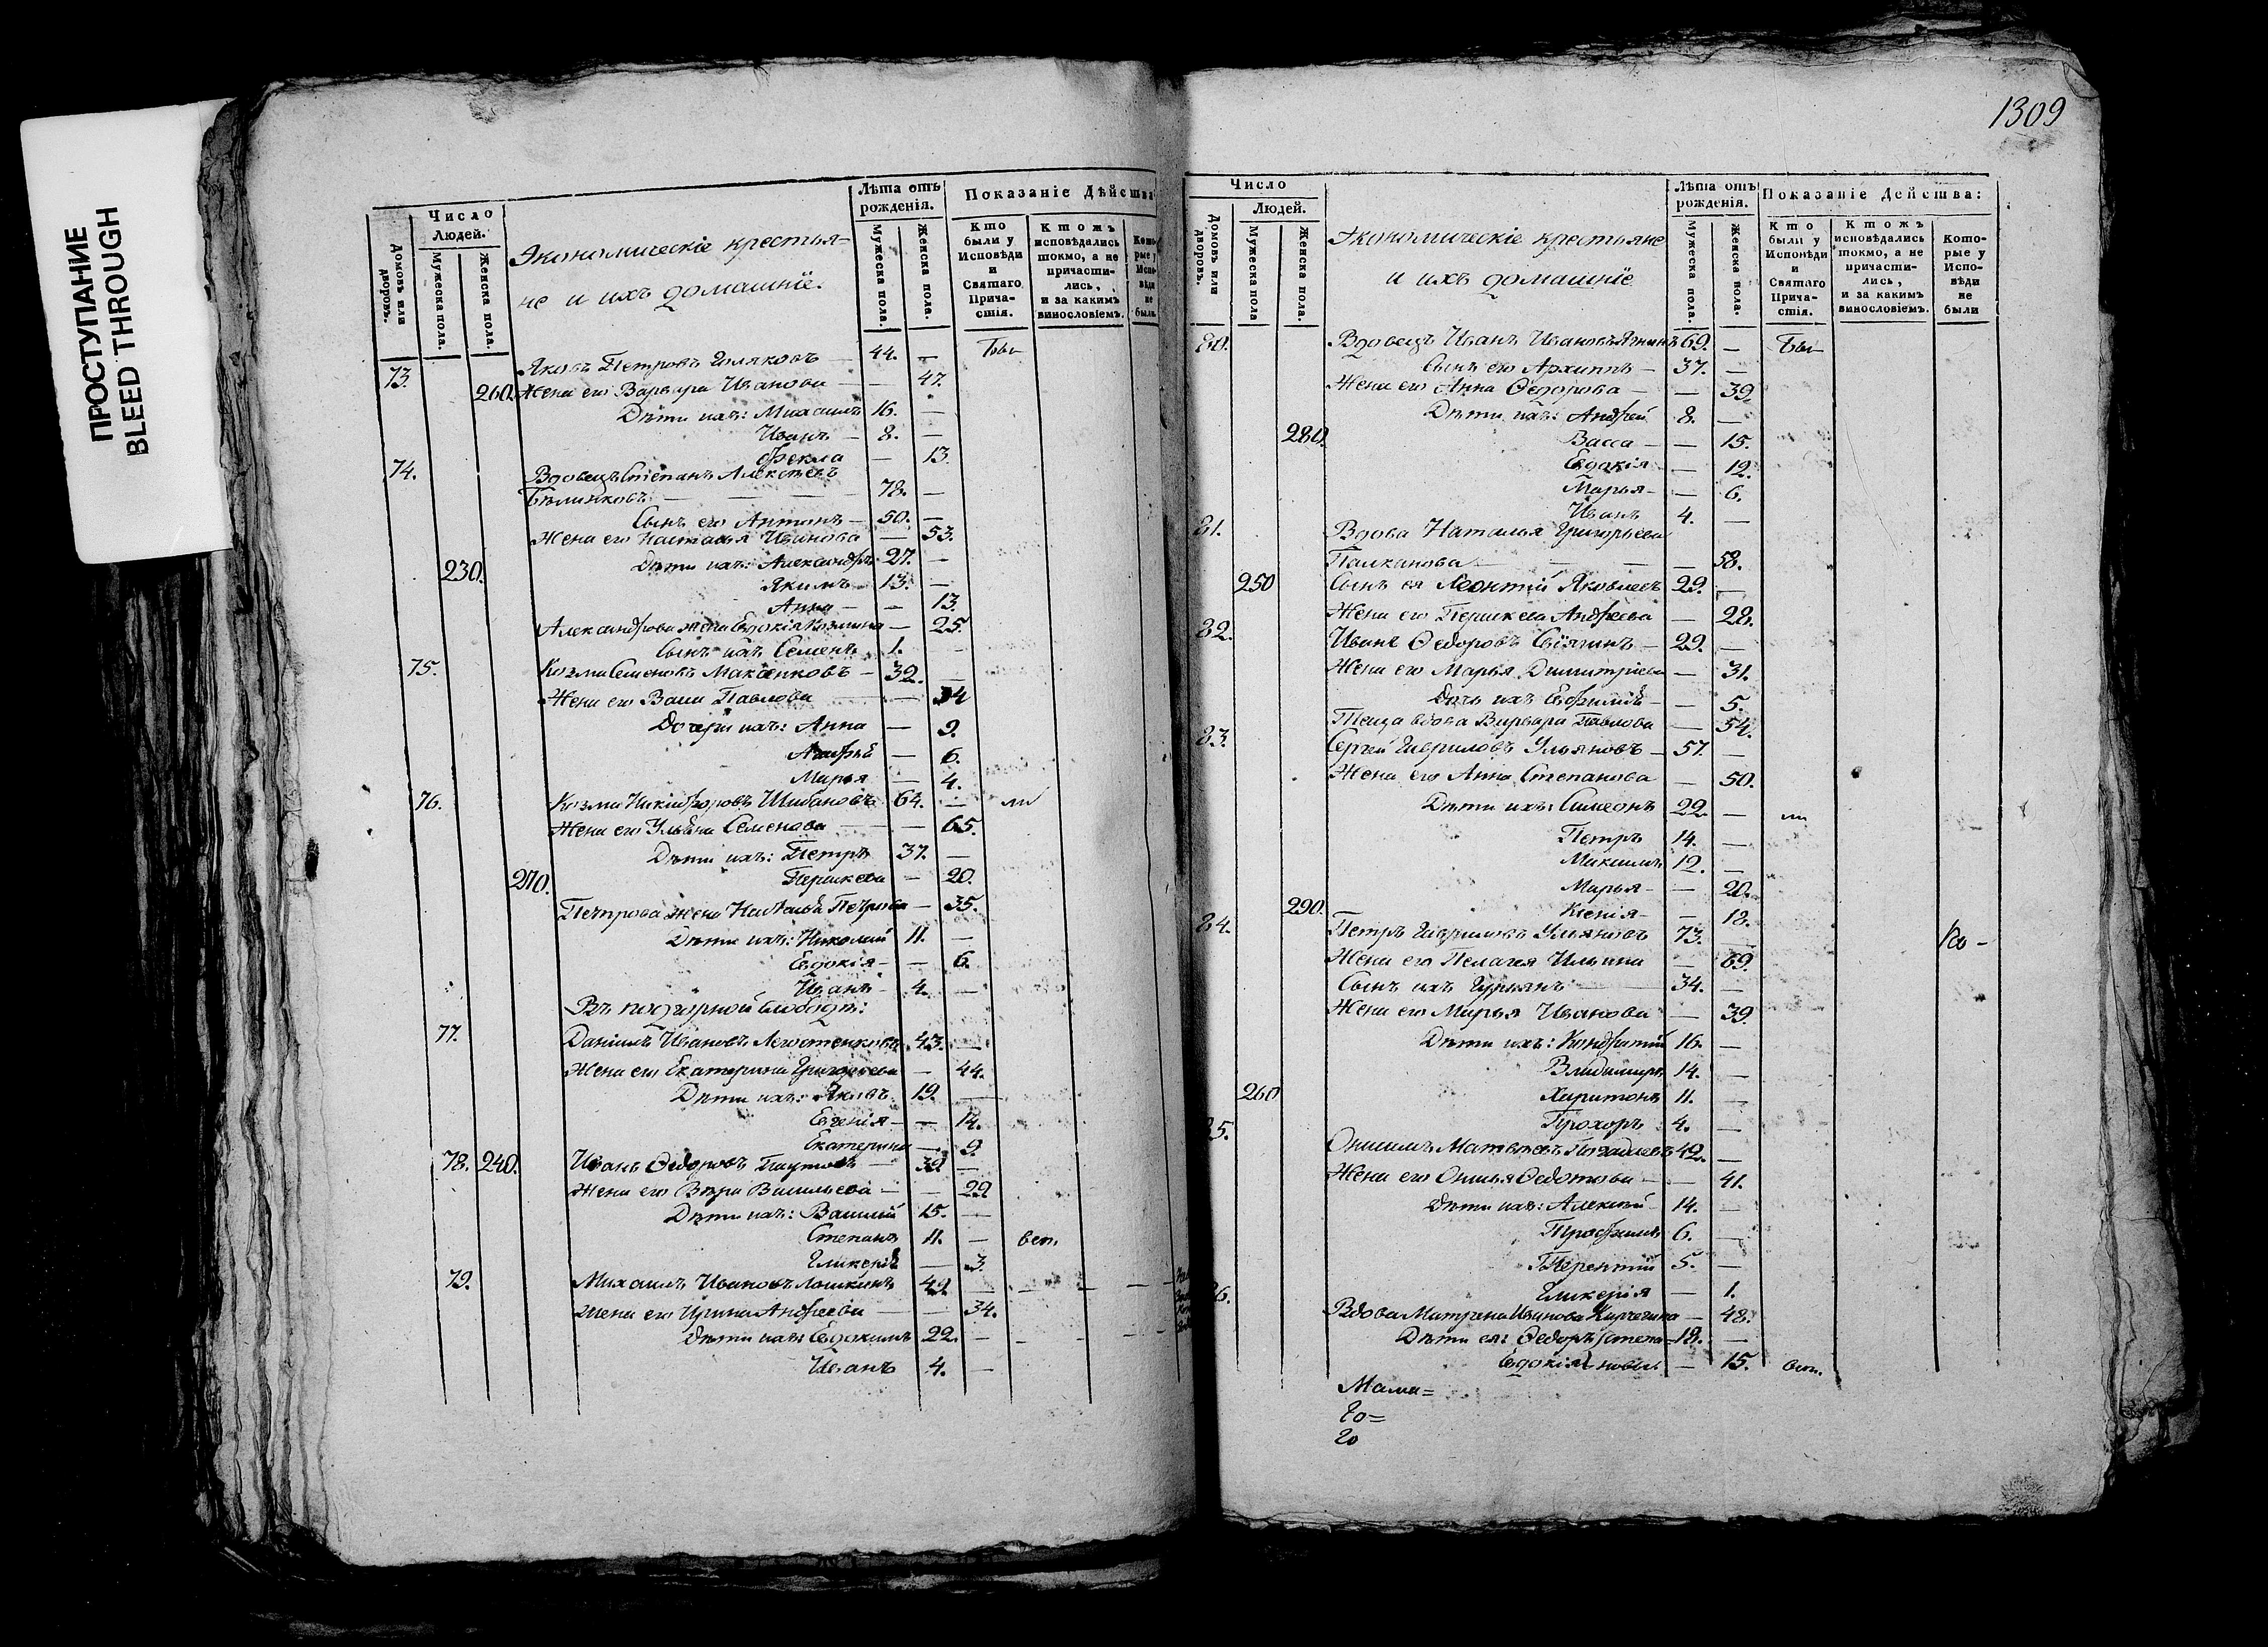 ПРОСТУПАНИЕ
BLEED THROUGH
Число
Людей.
Домовъ или дворовъ.
Мужеска пола.
Женска пола.
Экономическіе крестья-
не и ихъ домашніе.
Лѣта отъ рожденія.
Мужеска пола.
Женска пола.
Показаніе Дѣйства
Кто были у Исповѣди и Святаго Причастія.
Ктожъ исповѣдались токмо, а не причастились, и за какимъ винословіемъ.
73. Яковъ Петровъ Голяковъ 44. — Бы
260. Жена его Варвара Иванова — 47.
Дѣти ихъ: Михаилъ 16. —
Иванъ — 8. —
Фекла — 13.
74. Вдовецъ Степанъ Алексѣевъ
Бѣлинковъ — 78. —
Сынъ его Антонъ — 50. —
Жена его Настасья Иванова — 53.
230. Дѣти ихъ: Александръ 27. —
Якимъ 13. —
Анна — — 13.
Александрова жена Евдокія Козмина — 25.
Сынъ ихъ Семенъ 1. —
75. Козма Семеновъ Максенковъ — 32. —
Жена его Васса Павлова — 34
Дочери ихъ: Анна — 9.
Агафья — 6.
Марья — 4.
76. Козма Никифоровъ Шибановъ 64. — ли
Жена его Ульяна Семенова — 65.
Дѣти ихъ: Петръ 37. —
270. Параскева — 20.
Петрова жена Наталья Петрова — 35.
Дѣти ихъ: Николай 11. —
Евдокія — — 6.
Иванъ 4. —
Въ подгорной слободѣ:
77. Даніилъ Ивановъ 43. —
Жена его Екатерина Григорьева — 44.
Дѣти ихъ: Яковъ 19. —
Евгенія — — 14.
Екатерина — 9.
78. 240. Иванъ Ѳедоровъ 39. —
Жена его Вѣра Васильева — — 29
Дѣти ихъ: Василій 15. —
Степанъ 11. — вси.
Гликерія — 3.
79. Михаилъ Ивановъ Лошкинъ 49. —
Жена его Ирина Андреева — 34.
Дѣти ихъ: Евдокимъ 22. —
Иванъ 4. —
1309
Число
Людей.
Домовъ или дворовъ.
Мужеска пола
Женска пола.
Экономическіе крестьяне
и ихъ домашніе
Лѣта отъ рожденія.
Мужеска пола.
Женска пола.
Показаніе Действа:
Кто были у Исповѣди и Святаго Причастія.
Ктожъ исповѣдались токмо, а не причастились, и за какимъ винословіемъ.
Которые у Исповѣди не были
80. Вдовецъ Иванъ Ивановъ 69. — Бы
Сынъ его Архиппъ — 37. —
Жена его Анна Ѳедорова — — 39.
Дѣти ихъ: Андрей 8. —
280. Васса — — 15.
Евдокія — 12.
Марья — — 6.
Иванъ 4. —
81. Вдова Наталья Григорьева
Палканова — 58.
250 Сынъ ея Леонтій Яковлевъ 29. —
Жена его Параскева Андреева — 28.
82. Иванъ Ѳедоровъ — 29. —
Жена его Марья Димитріева — 31.
Дочь ихъ Евфимія — — 5.
Теща вдова Варвара Павлова — 54.
83. Сергей Гавриловъ Ульяновъ — 57. —
Жена его Анна Степанова — 50.
Дѣти ихъ: Симеонъ 22. — ли
Петръ 14. —
Максимъ 12. —
Марья — — 20.
290. Ксенія — — 18.
84. Петръ Гавриловъ Ульяновъ 73. — Ко-
Жена его Пелагея Ильина — 69.
Сынъ ихъ Гурьянъ 34. —
Жена его Марья Иванова — 39.
Дѣти ихъ: Кондратій 16. —
Владимиръ 14. —
260 Харитонъ 11. —
Прохоръ 4. —
85. Онисимъ Матвѣевъ 42. —
Жена его Ѳедотова — — 41.
Дѣти ихъ: Алексѣй — 14. —
Трофимъ 6. —
Терентій 5. —
Гликерія — 1.
86. Вдова Матрена Иванова — 48.
Дѣти ея: Ѳедоръ Степа= 18. —
Евдокія новы. — 15. вси.
Мама=
го=
го